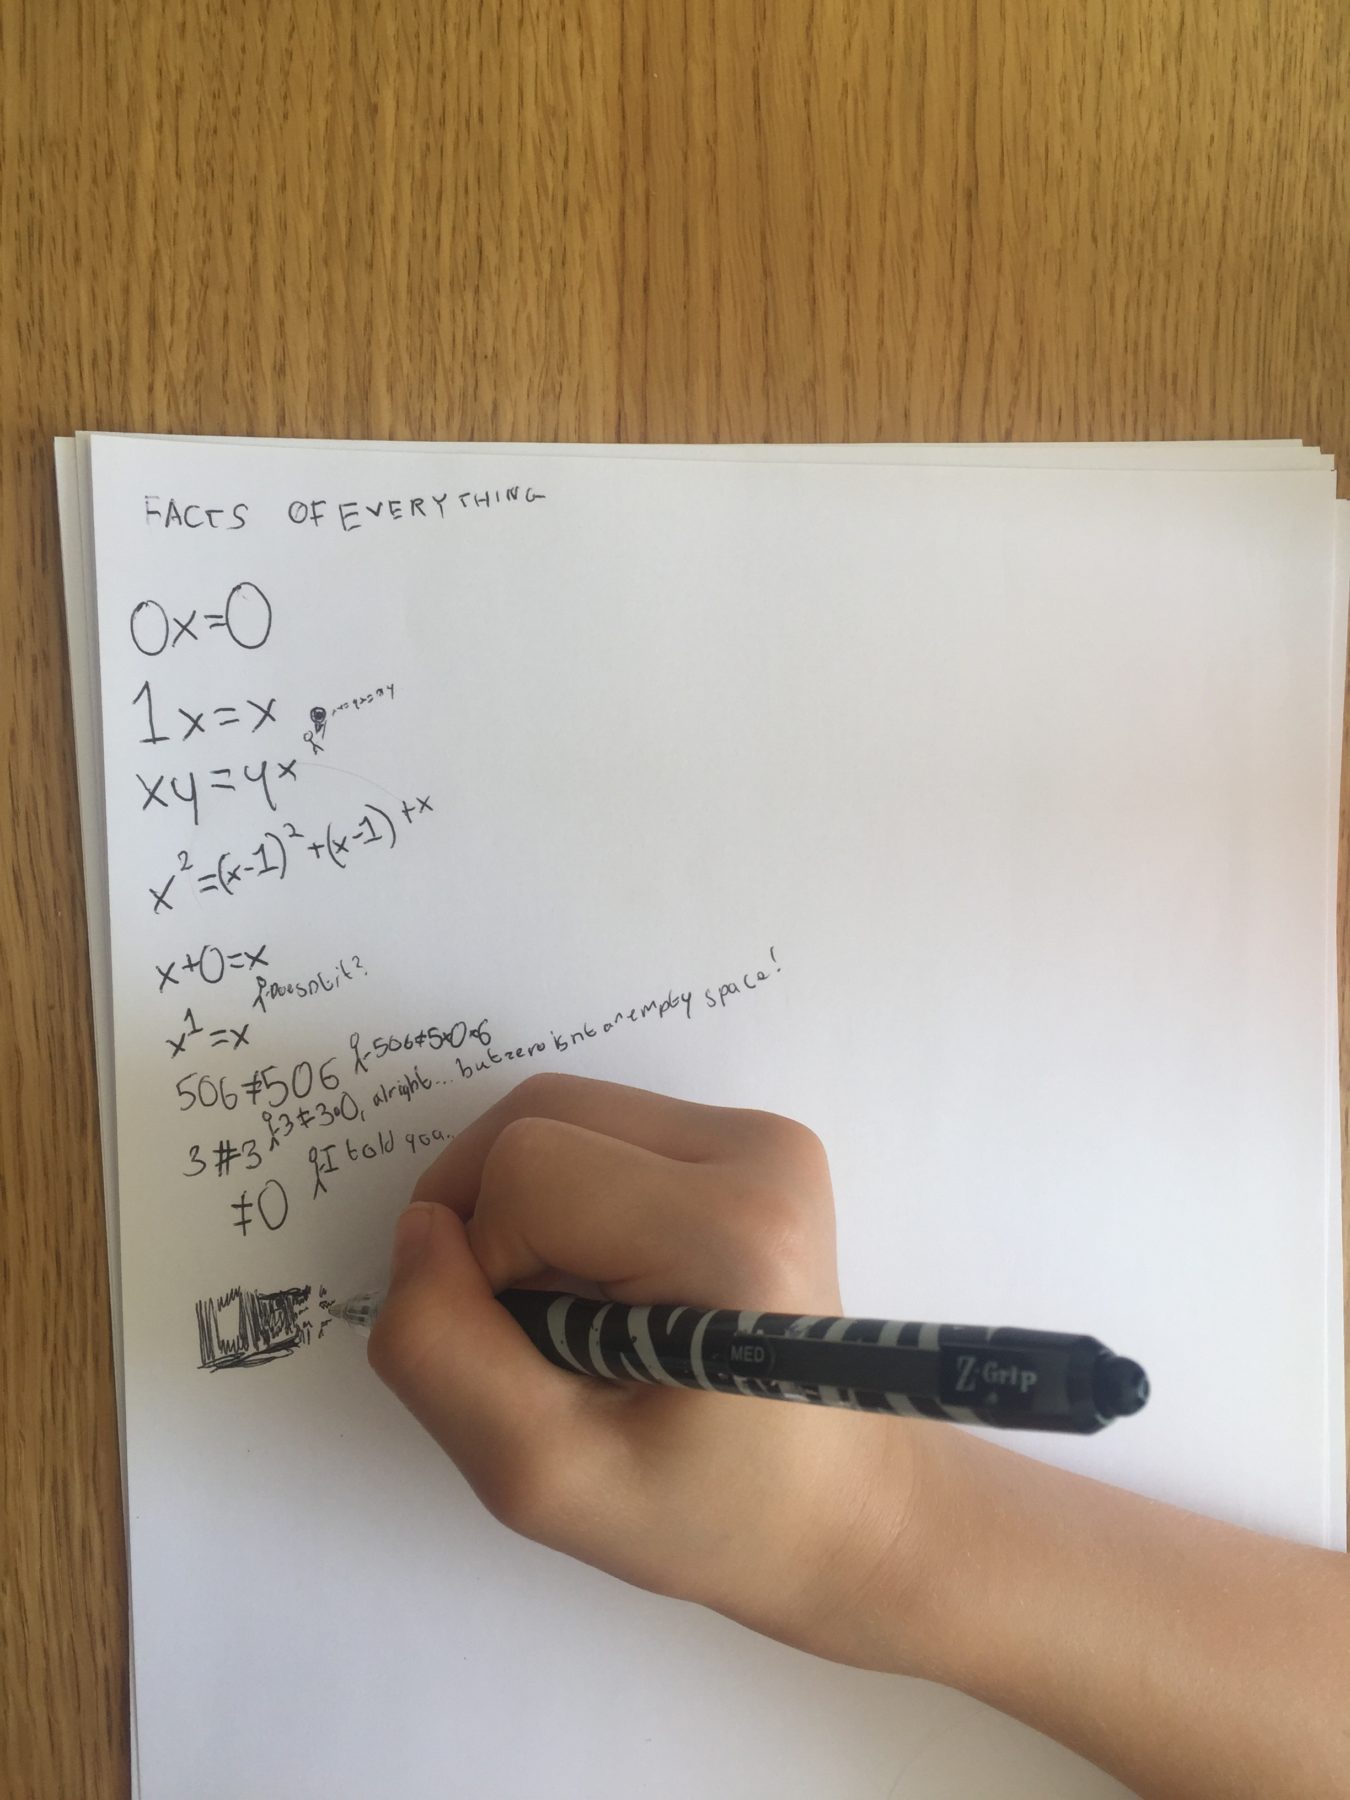 FACTS OF EVERYTHING
0x=0
1x=x
xy=yx
x²=(x-1)²+(x-1)+x
x+0=x
Doesnt it?
x¹=x
506≠506 -506≠5·0·6
3≠3 -3≠3·0, alright... but zero isnt an empty space!
≠0 -I told you..
MED
Z-Grip